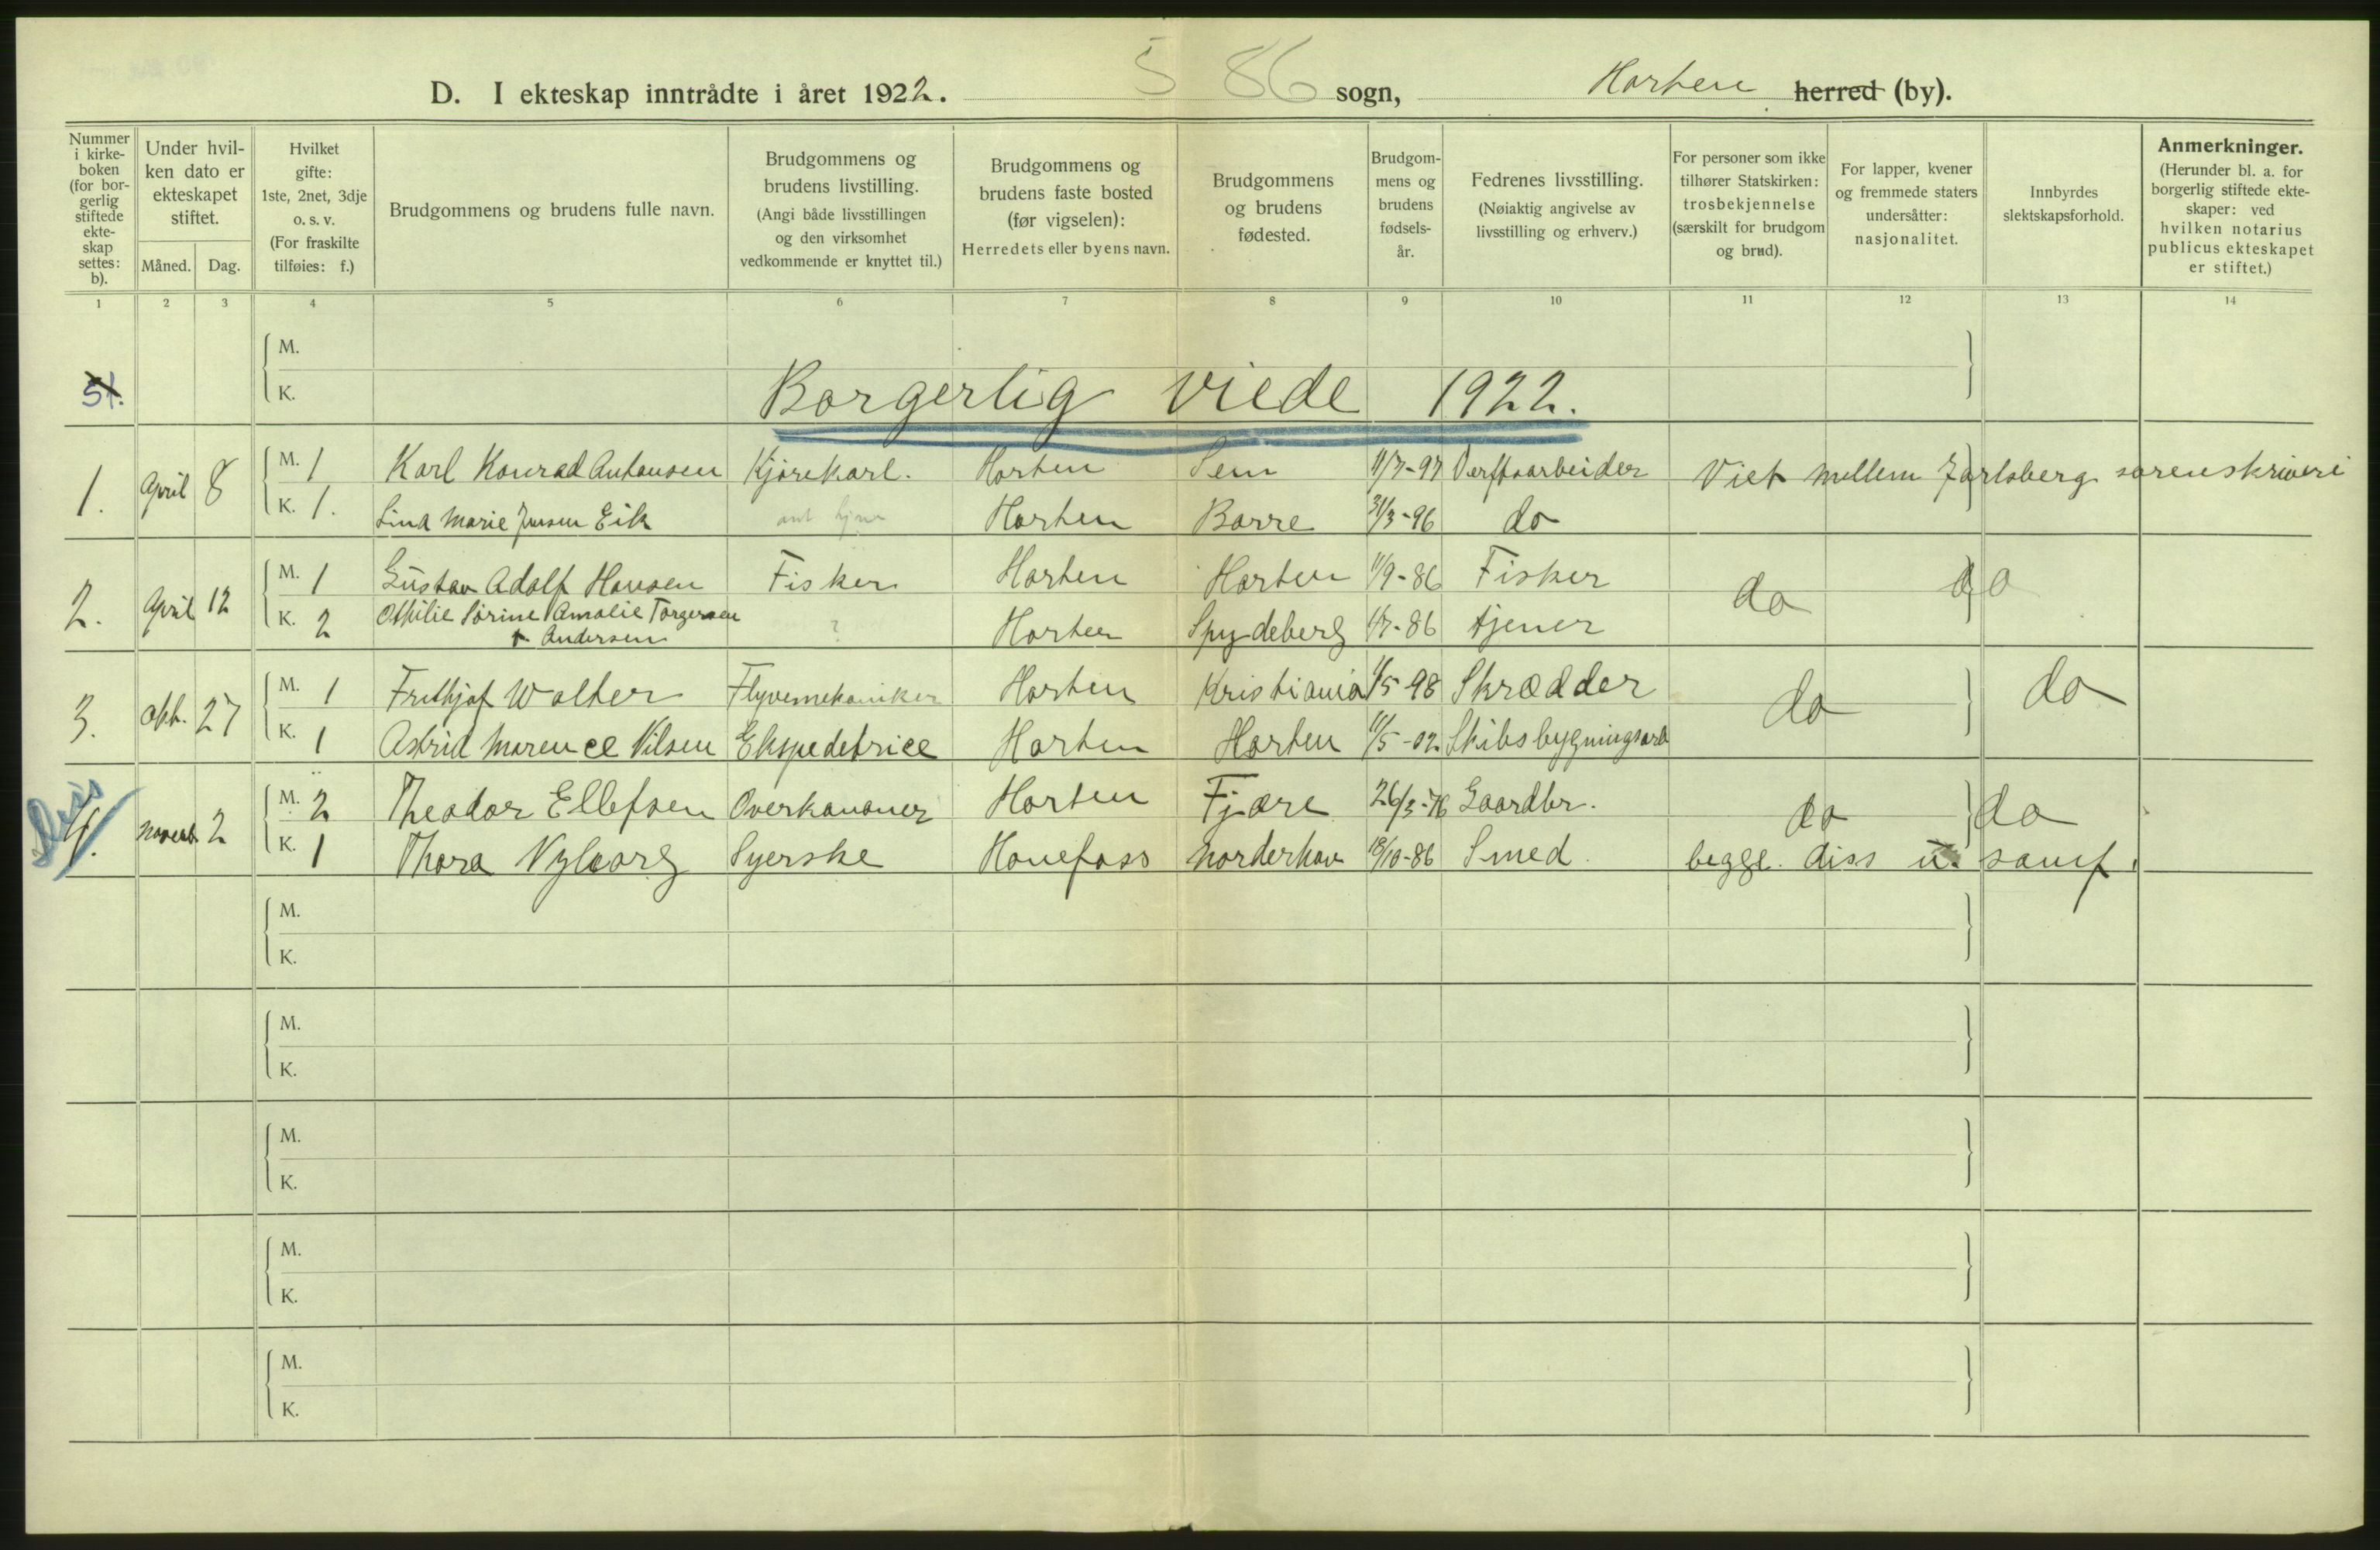 D. I ekteskap inntrådte i året 1922. 5 86 sogn, Horten herred (by).
Nummer i kirkeboken (for borgerlig stiftede ekteskap settes: b).
Under hvilken dato er ekteskapet stiftet.
Måned. Dag.
Hvilket gifte: 1ste, 2net, 3dje o. s. v. (For fraskilte tilføies: f.)
Brudgommens og brudens fulle navn.
Brudgommens og brudens livstilling. (Angi både livsstillingen og den virksomhet vedkommende er knyttet til.)
Brudgommens og brudens faste bosted (før vigselen): Herredets eller byens navn.
Brudgommens og brudens fødested.
Brudgommens og brudens fødselsår.
Fedrenes livsstilling. (Nøiaktig angivelse av livsstilling og erhverv.)
For personer som ikke tilhører Statskirken: trosbekjennelse (særskilt for brudgom og brud).
For lapper, kvener og fremmede staters undersåtter: nasjonalitet.
Innbyrdes slektskapsforhold.
Anmerkninger. (Herunder bl. a. for borgerlig stiftede ekteskaper: ved hvilken notarius publicus ekteskapet er stiftet.)
1 2 3 4 5 6 7 8 9 10 11 12 13 14
M.
K.
Borgerlig viede 1922.
1. April 8 M. 1 Karl Konrad Antonsen Kjörekarl. Horten Sem 11/7-97 Verftsarbeider Viet mellem Jarlsberg sorenskriveri
K. 1. Lina Marie Jensen Eik Horten Borre 31/3-96 do
2. April 12 M. 1 Gustav Adolf Hansen Fisker Horten Horten 11/9-86 Fisker do do
K. 2 Othilie Sörine Amalie Torgersen ? Horten Spydeberg 1/7-86 tjener
Andersen
3. Okt. 27 M. 1 Frithjof Walter Flyvemekaniker Horten Kristiania 1/5-98 Skrædder do do
K. 1 Astrid Marence Nilsen Ekspedetrice Horten Horten 11/5-02 Skibsbygningsarb
Diss 4. Novemb. 2 M. 2 Theodor Ellefsen Overkanoner Horten Fjære 26/3-76 Gaardbr. do do
K. 1 Thora Nyborg Syerske Hönefoss Norderhov 18/10-86 Smed. begge diss u. samf.
M.
K.
M.
K.
M.
K.
M.
K.
M.
K.